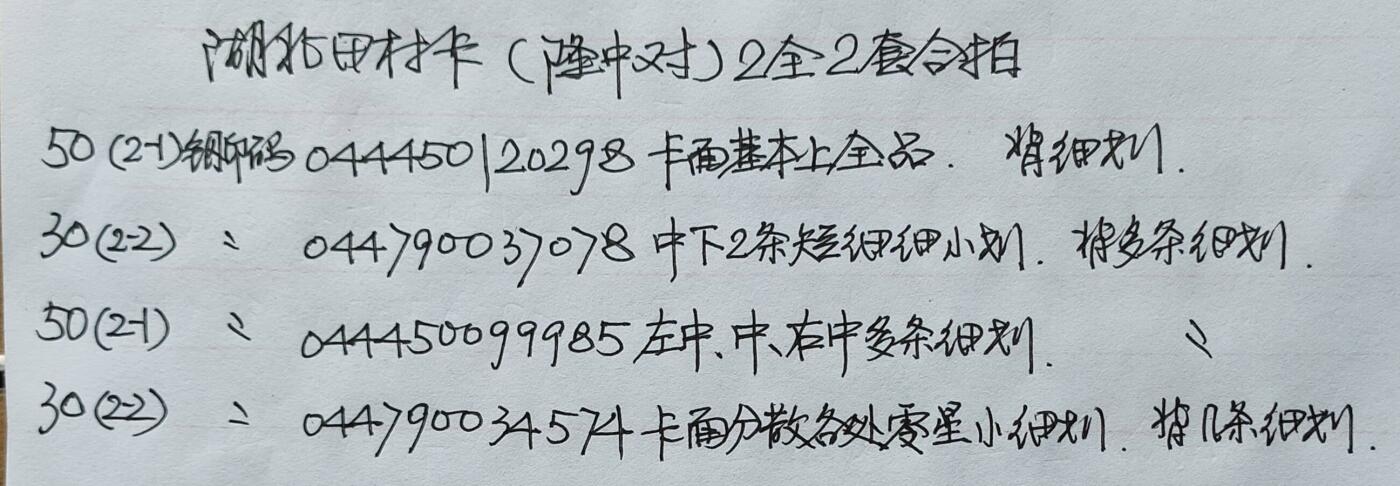 湖北田村卡（隆中对）2全2套合拍
50(2-1)钢印码 044450120298 卡面基本上全品. 背细划.
30(2-2) 〃 044790037078 中下2条短细细小划. 背多条细划.
50(2-1) 〃 044450099985 左中、中、右中多条细划. 〃
30(2-2) 〃 044790034574 卡面分散各处零星小细划. 背几条细划.